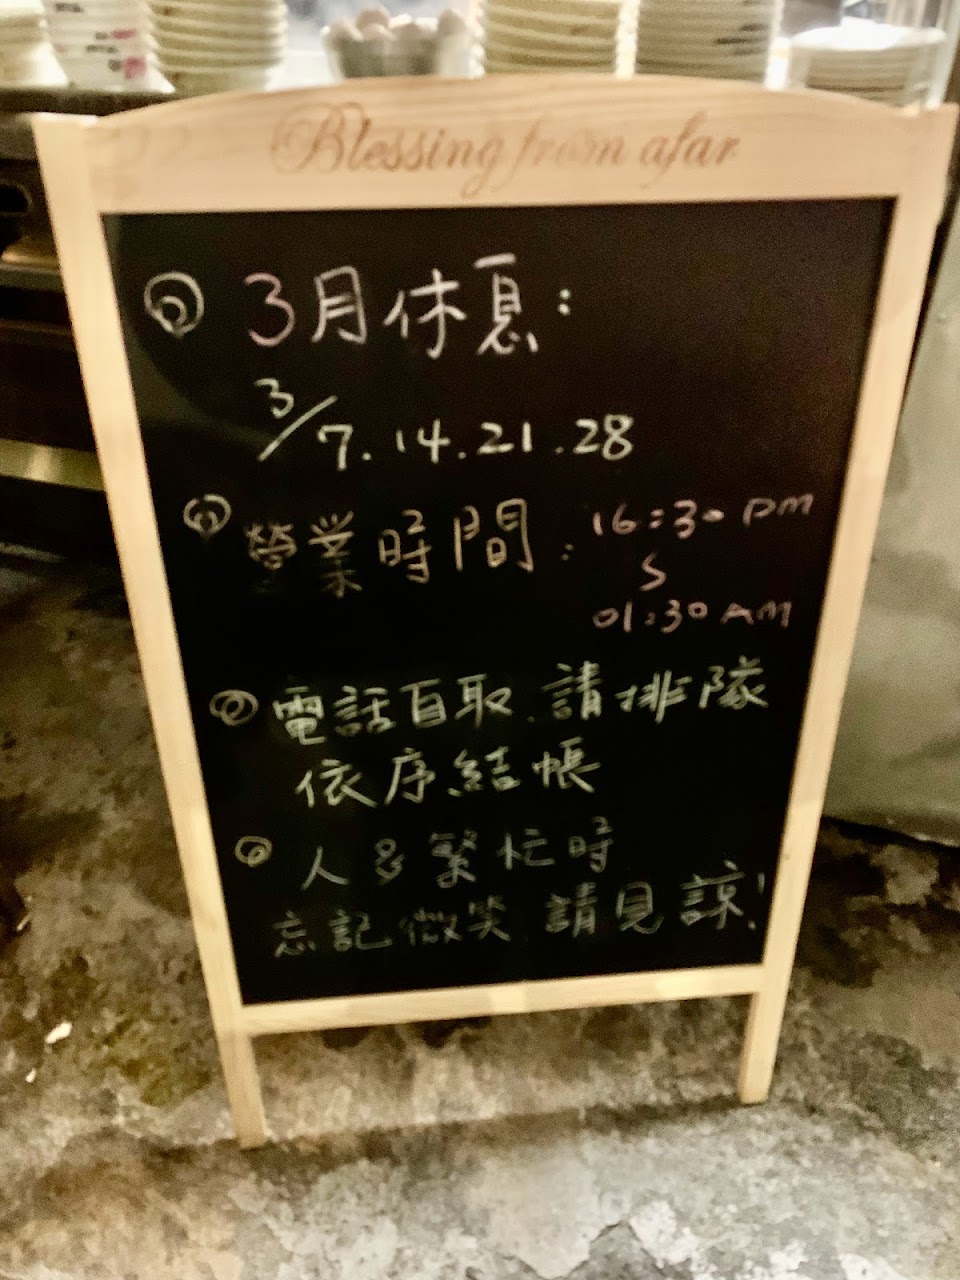 Blessing from afar
3月休息:
3/7.14.21.28
營業時間: 16:30 PM
S
01:30 AM
電話自取.請排隊
依序結帳
人多繁忙時
忘記微笑 請見諒!